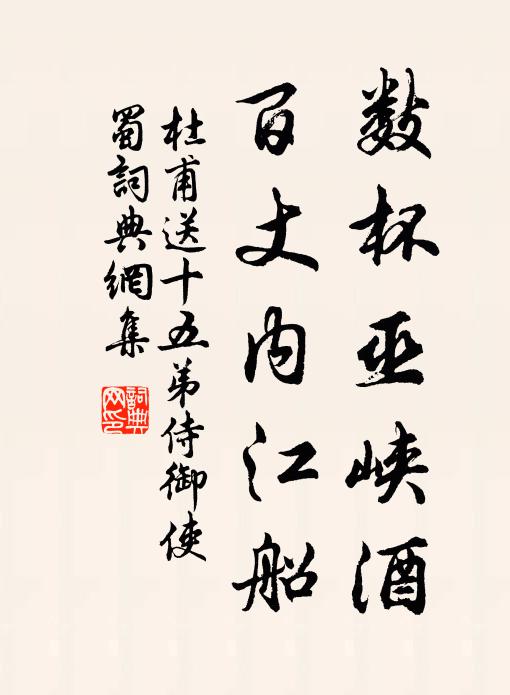 数杯巫峡酒
百丈内江船
杜甫送十五弟侍御使
蜀詞典網集
詞典
网印